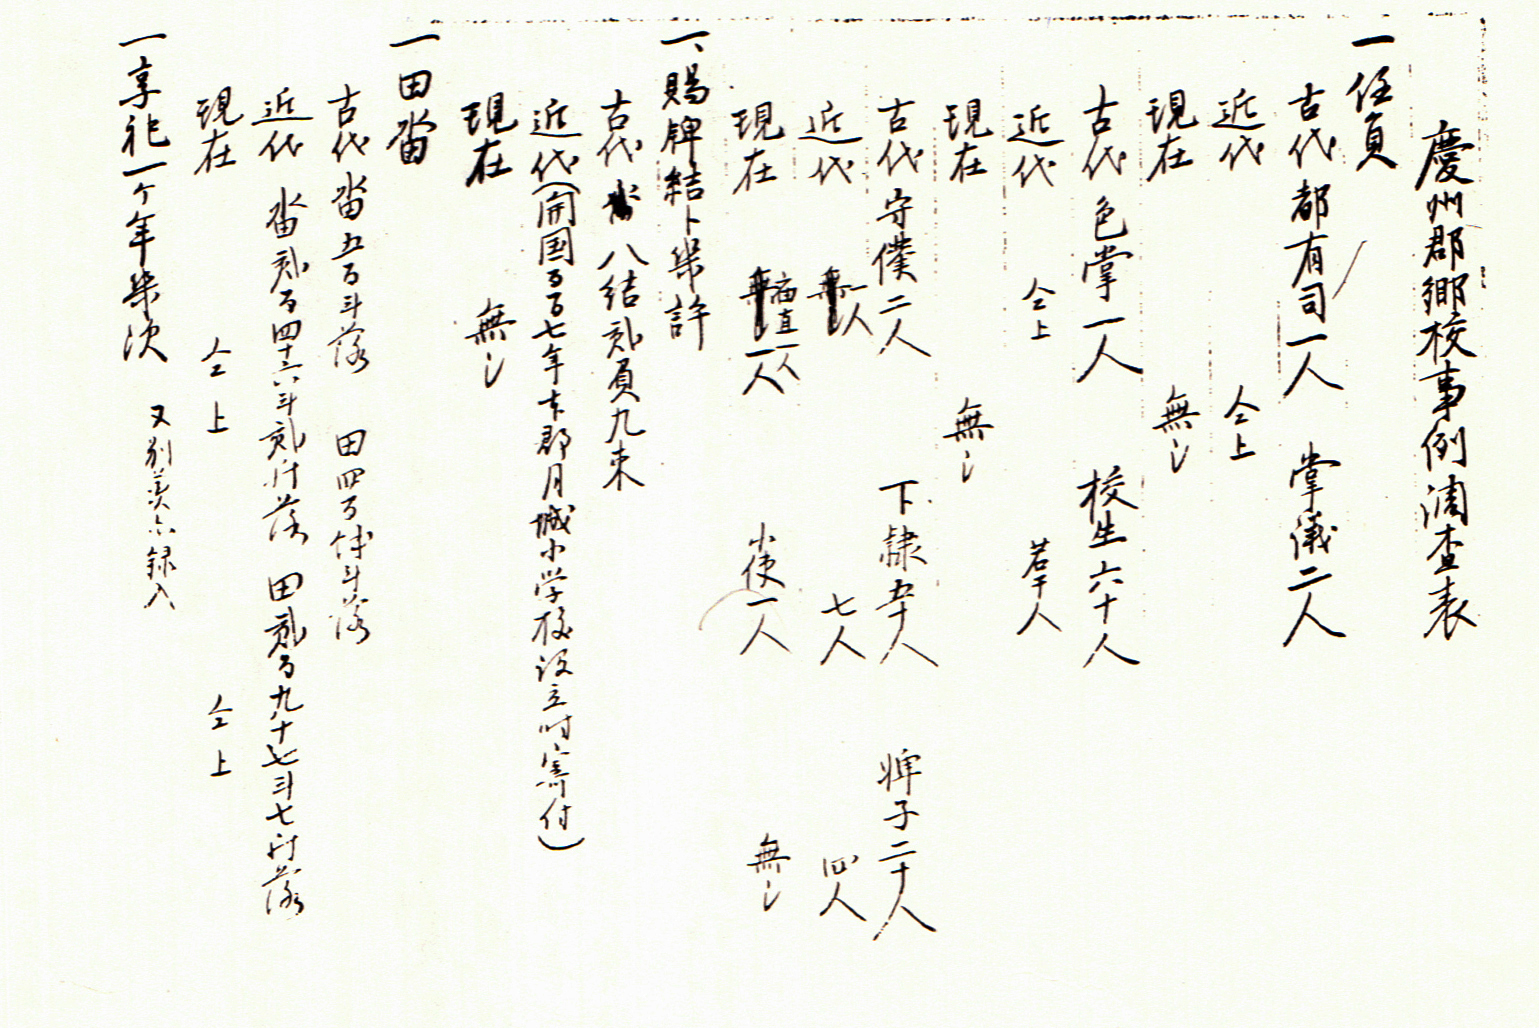 慶州郡鄕校事例調査表
一 任員
古代 都有司一人 掌儀二人
近代 仝上
現在 無シ
古代 色掌一人 校生六十人
近代 仝上 若干人
現在 無シ
古代 守僕二人 下隷五十人 婢子二十人
近代 一人 七人 四人
現在 廟直一人 一人 小使一人 無シ
一、賜牌結卜幾許
古代 八結貳負九束
近代(開国五百七年本郡月城小学校設立時寄付)
現在 無シ
一 田畓
古代 畓五百斗落 田四百斗落
近代 畓貳百四十六斗貳升落 田貳百九十七斗七升落
現在 仝上 仝上
一 享祀一ケ年幾次 又別錄入